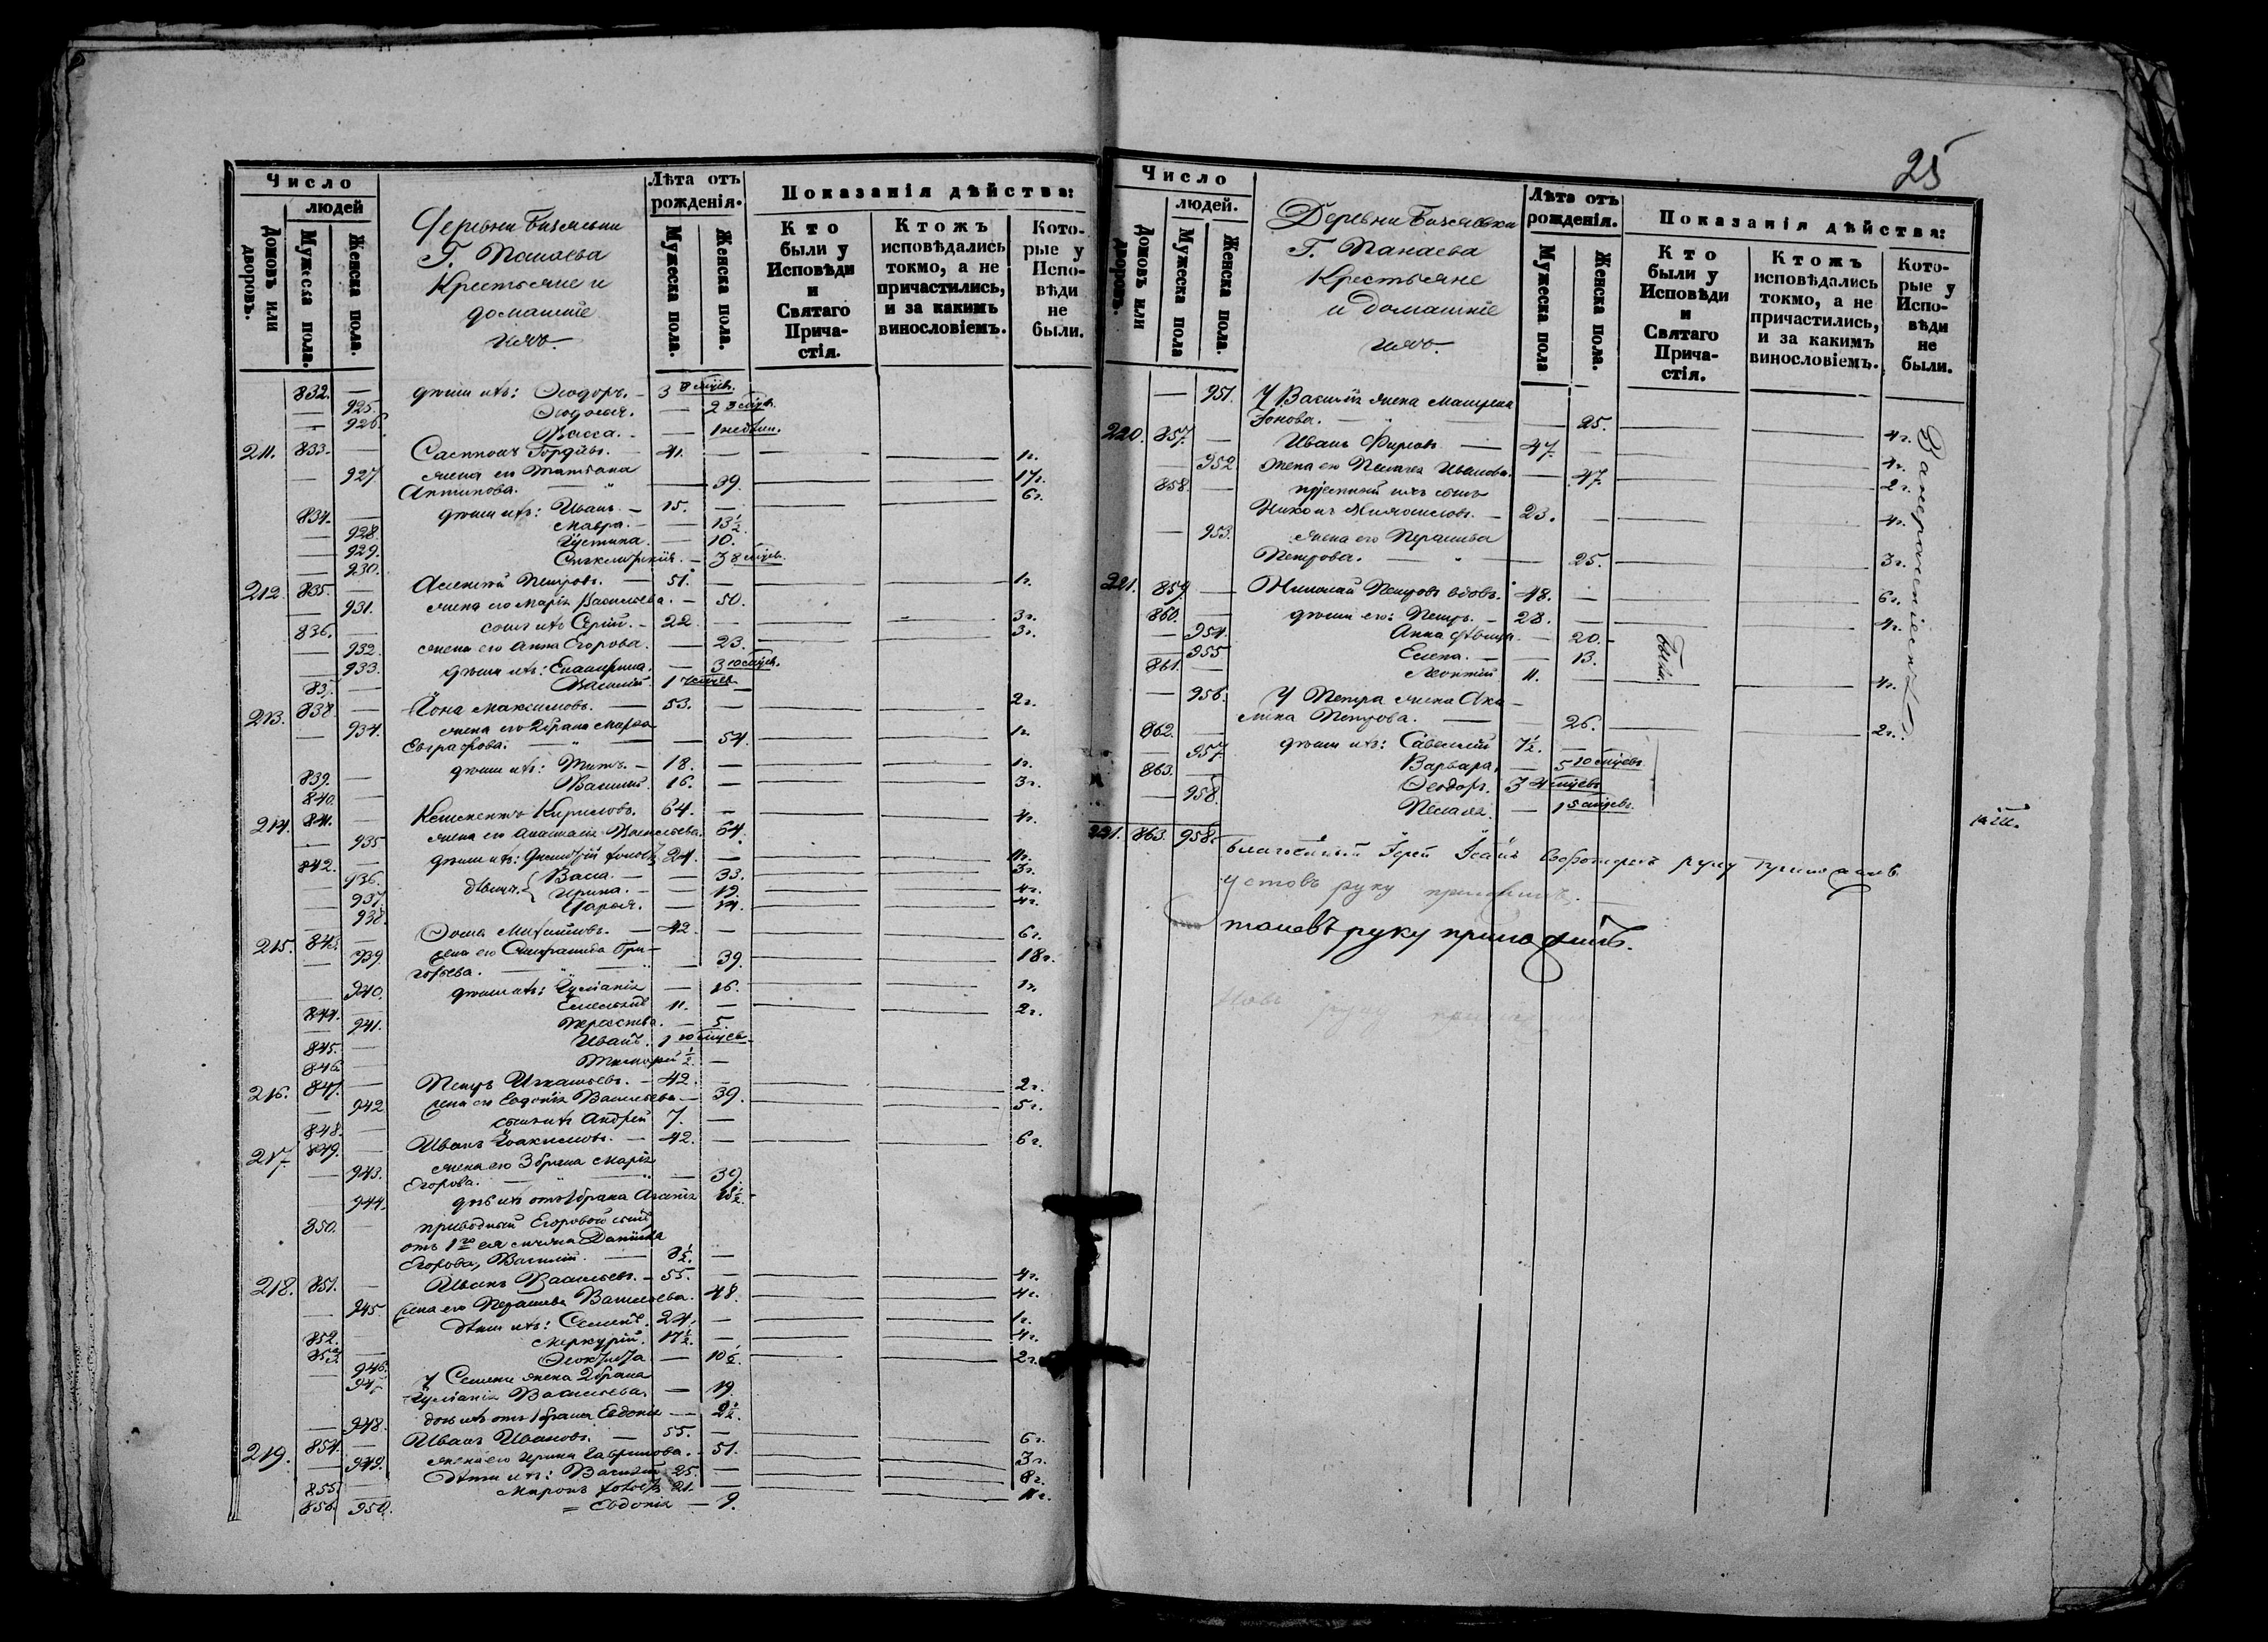 Число
людей
Домовъ или дворовъ.
Мужеска пола.
Женска пола.
Деревни
Г. Панаева
Крестьяне и
домашніе
ихъ.
Лѣта отъ
рожденія.
Мужеска пола.
Женска пола.
Показанія дѣйства:
Кто
были у
Исповѣди
и
Святаго
Прича-
стія.
Ктожъ
исповѣдались
токмо, а не
причастились,
и за какимъ
винословіемъ.
Кото-
рые у
Испо-
вѣди
не
были.
832. — дѣти ихъ: Ѳеодоръ. — 3 8 мѣсяц.
— 925. Ѳедосья. — 2 3 мѣсяц.
— 926. Васса. — 1 недѣли.
211. 833. — 41. — 1г.
— 927 жена его Татіана
Антипова. — 39. 17г.
834. — дѣти ихъ: Иванъ. — 15. — 6г.
— 928. Мавра. — 13½
— 929. Іустина. — 10.
— 930. 3 8 мѣсяц.
212. 835. — Алексѣй Петровъ. — 51. — 1г.
— 931. жена его Марія Васильева. — 50.
836. — сынъ ихъ Сергій. — 22. — 3г.
— 932. жена его Анна Егорова. — 23. 3г.
— 933. дѣти ихъ: Екатерина. — 3 10 мѣсяц.
837. — Василій. 1
213. 838. — Іона Максимовъ. — 53. — 2г.
— 934. жена его 2 брака Марѳа
Евграфова. — 54. 1г.
839. — дѣти ихъ: Титъ. — 18. — 1г.
840. — Василій. 16. — 3г.
214. 841. — Климентъ Кириловъ. 64. — 4г.
— 935 жена его Анастасія Васильева. 64.
842. — дѣти ихъ: Дмитрій холостъ 24. — 11г.
— 936. дѣвицы Васса. — 33. 3г.
— 937. Ирина. — 19. 4г.
— 938. Дарья. — 14. 4г.
215. 843. — Ѳома Михайловъ. — 42. — 6г.
— 939. жена его Гри-
горьева. — 39. 18г.
— 940. дѣти ихъ: Іуліанія — 16. 1г.
844. — Емельянъ 11. — 2г.
— 941. — 5.
845. — Иванъ. 1 10 мѣсяц. —
846. — Тимофей ½ —
216. 847. — Петръ Игнатьевъ. — 42. — 2г.
— 942 жена его Евдокія Васильева — 39. 5г.
848. — сынъ ихъ Андрей 7. —
217. 849. — Иванъ Іоакимовъ. — 42. — 6г.
— 943. жена его 3 брака Марія
Егорова. — 39.
— 944. дочь ихъ отъ 1 брака
850. — приводный Егоровой сынъ
отъ 1го ея мужа Даніила
Егорова, Василій. — 8½. —
218. 851. — Иванъ Васильевъ. — 55. — 4г.
— 945 жена его Васильева. 48. 4г.
852. — дѣти ихъ: Семенъ. 24. — 1г.
853. — Меркурій. 17½. — 4г.
— 946. — 10½. 2г.
— 947 у Семена жена 2 брака
Іуліанія Васильева. — 19.
— 948. дочь ихъ отъ 1 брака Евдокія — 2½.
219. 854. — Иванъ Ивановъ. — 55. — 6г.
— 949. жена его Ирина Гаврилова. — 51. 3г.
855. — дѣти ихъ: Василій 25. — 8г.
856. — Миронъ холостъ 21. — 11г.
950. Евдокія — 9.
25
Число
людей.
Домовъ или дворовъ.
Мужеска пола
Женска пола.
Деревни
Г. Панаева
Крестьяне
и домашніе
ихъ.
Лѣта отъ
рожденія.
Мужеска пола
Женска пола.
Показанія дѣйства:
Кто
были у
Исповѣди
и
Святаго
Прича-
стія.
Ктожъ
исповѣдались
токмо, а не
причастились,
и за какимъ
винословіемъ.
Кото-
рые у
Испо-
вѣди
не
были.
— 951. У Василія жена Матрена
— 25. 4г.
220. 857. — Иванъ — 47. 4г.
— 952. жена его Пелагея Иванова. — 47. 2г.
858. — пріемный ихъ сынъ
Никонъ — 23. — 4г.
— 953. жена его
Петрова. — 25. 3г.
221. 859. — Николай Петровъ вдовъ. 48. — 6г.
860. — дѣти его: Петръ. — 28. — 4г.
— 954. Анна дѣвица. — 20.
— 955 Елена. — 13.
861. — Леонтій. 11. — 4г.
— 956. У Петра жена Аку-
лина Петрова. — 26. 2г.
862. — дѣти ихъ: Савелій 7½. —
— 957. Варвара, — 5 10 мѣсяц.
863. — Ѳеодоръ. 3 4 мѣсяц.
— 958. Пелагея. — 1 5 мѣсяц.
Были.
221. 863. 958.
Благочинный Іерей руку приложилъ
руку приложилъ.
руку приложилъ.